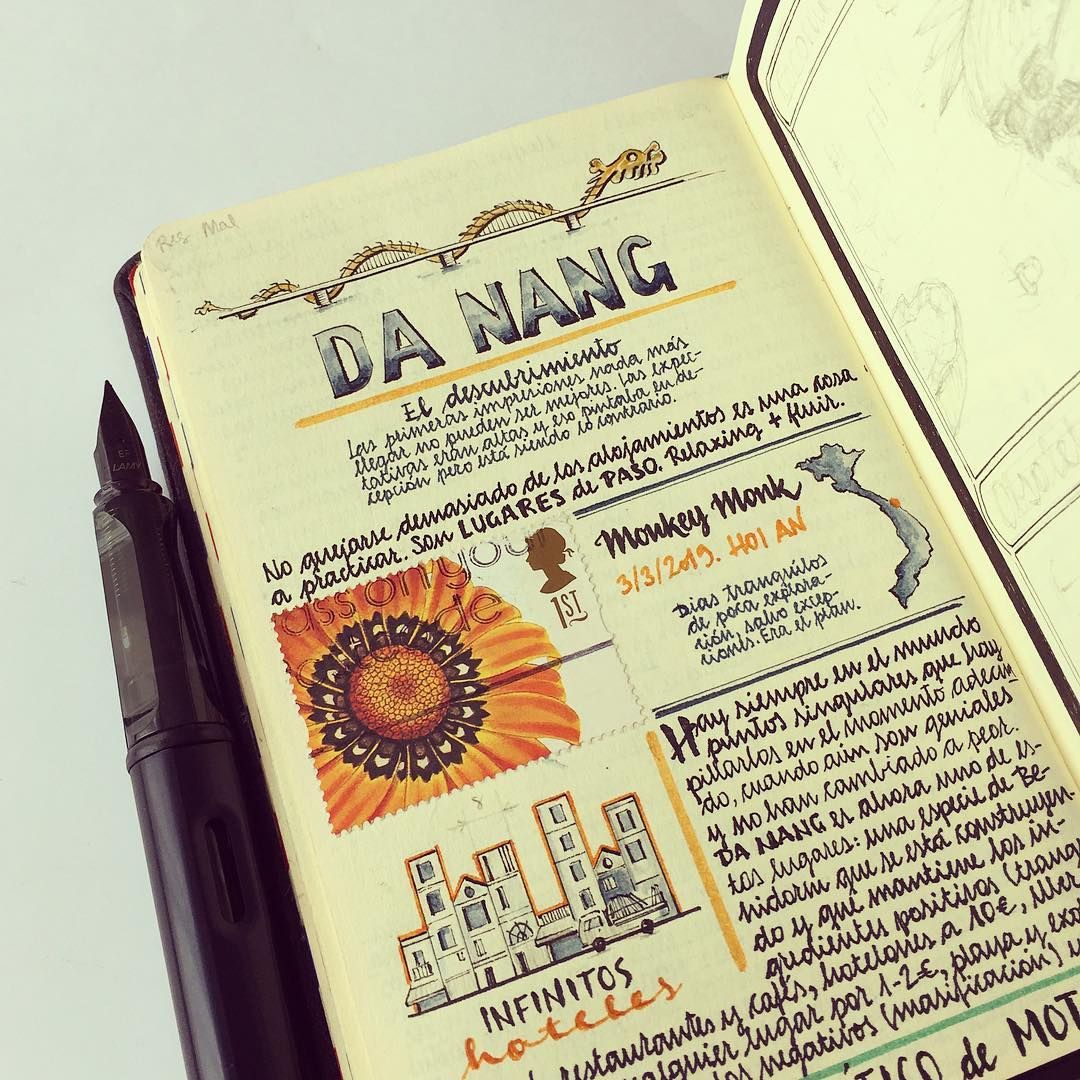 Res Mal
DA NANG
El descubrimiento
Las primeras impresiones nada más
llegar no pueden ser mejores. Las expec-
tativas eran altas y eso pintaba en de-
cepción pero está siendo lo contrario.
No quejarse demasiado de los alojamientos es una rosa
a practicar. SON LUGARES de PASO. Relaxing + fluir.
Monkey Monk
3/3/2019. HOI AN
Días tranquilos
de poca explora-
ción, salvo excep-
ciones. Era el plan.
1ST
Hay siempre en el mundo
puntos singulares que hay
pillarlos en el momento adecua
do, cuando aún son geniales
y no han cambiado a peor.
DA NANG es ahora uno de es-
tos lugares: una especie de Be-
nidorm que se está construyen-
do y que mantiene los in-
gredientes positivos (tranqu
restaurantes y cafés, hotelones a 10€, ller
ualquier lugar por 1-2€, playa y exot
los negativos (masificación) y
INFINITOS
hoteles
TICO de MOT
EF
LAMY